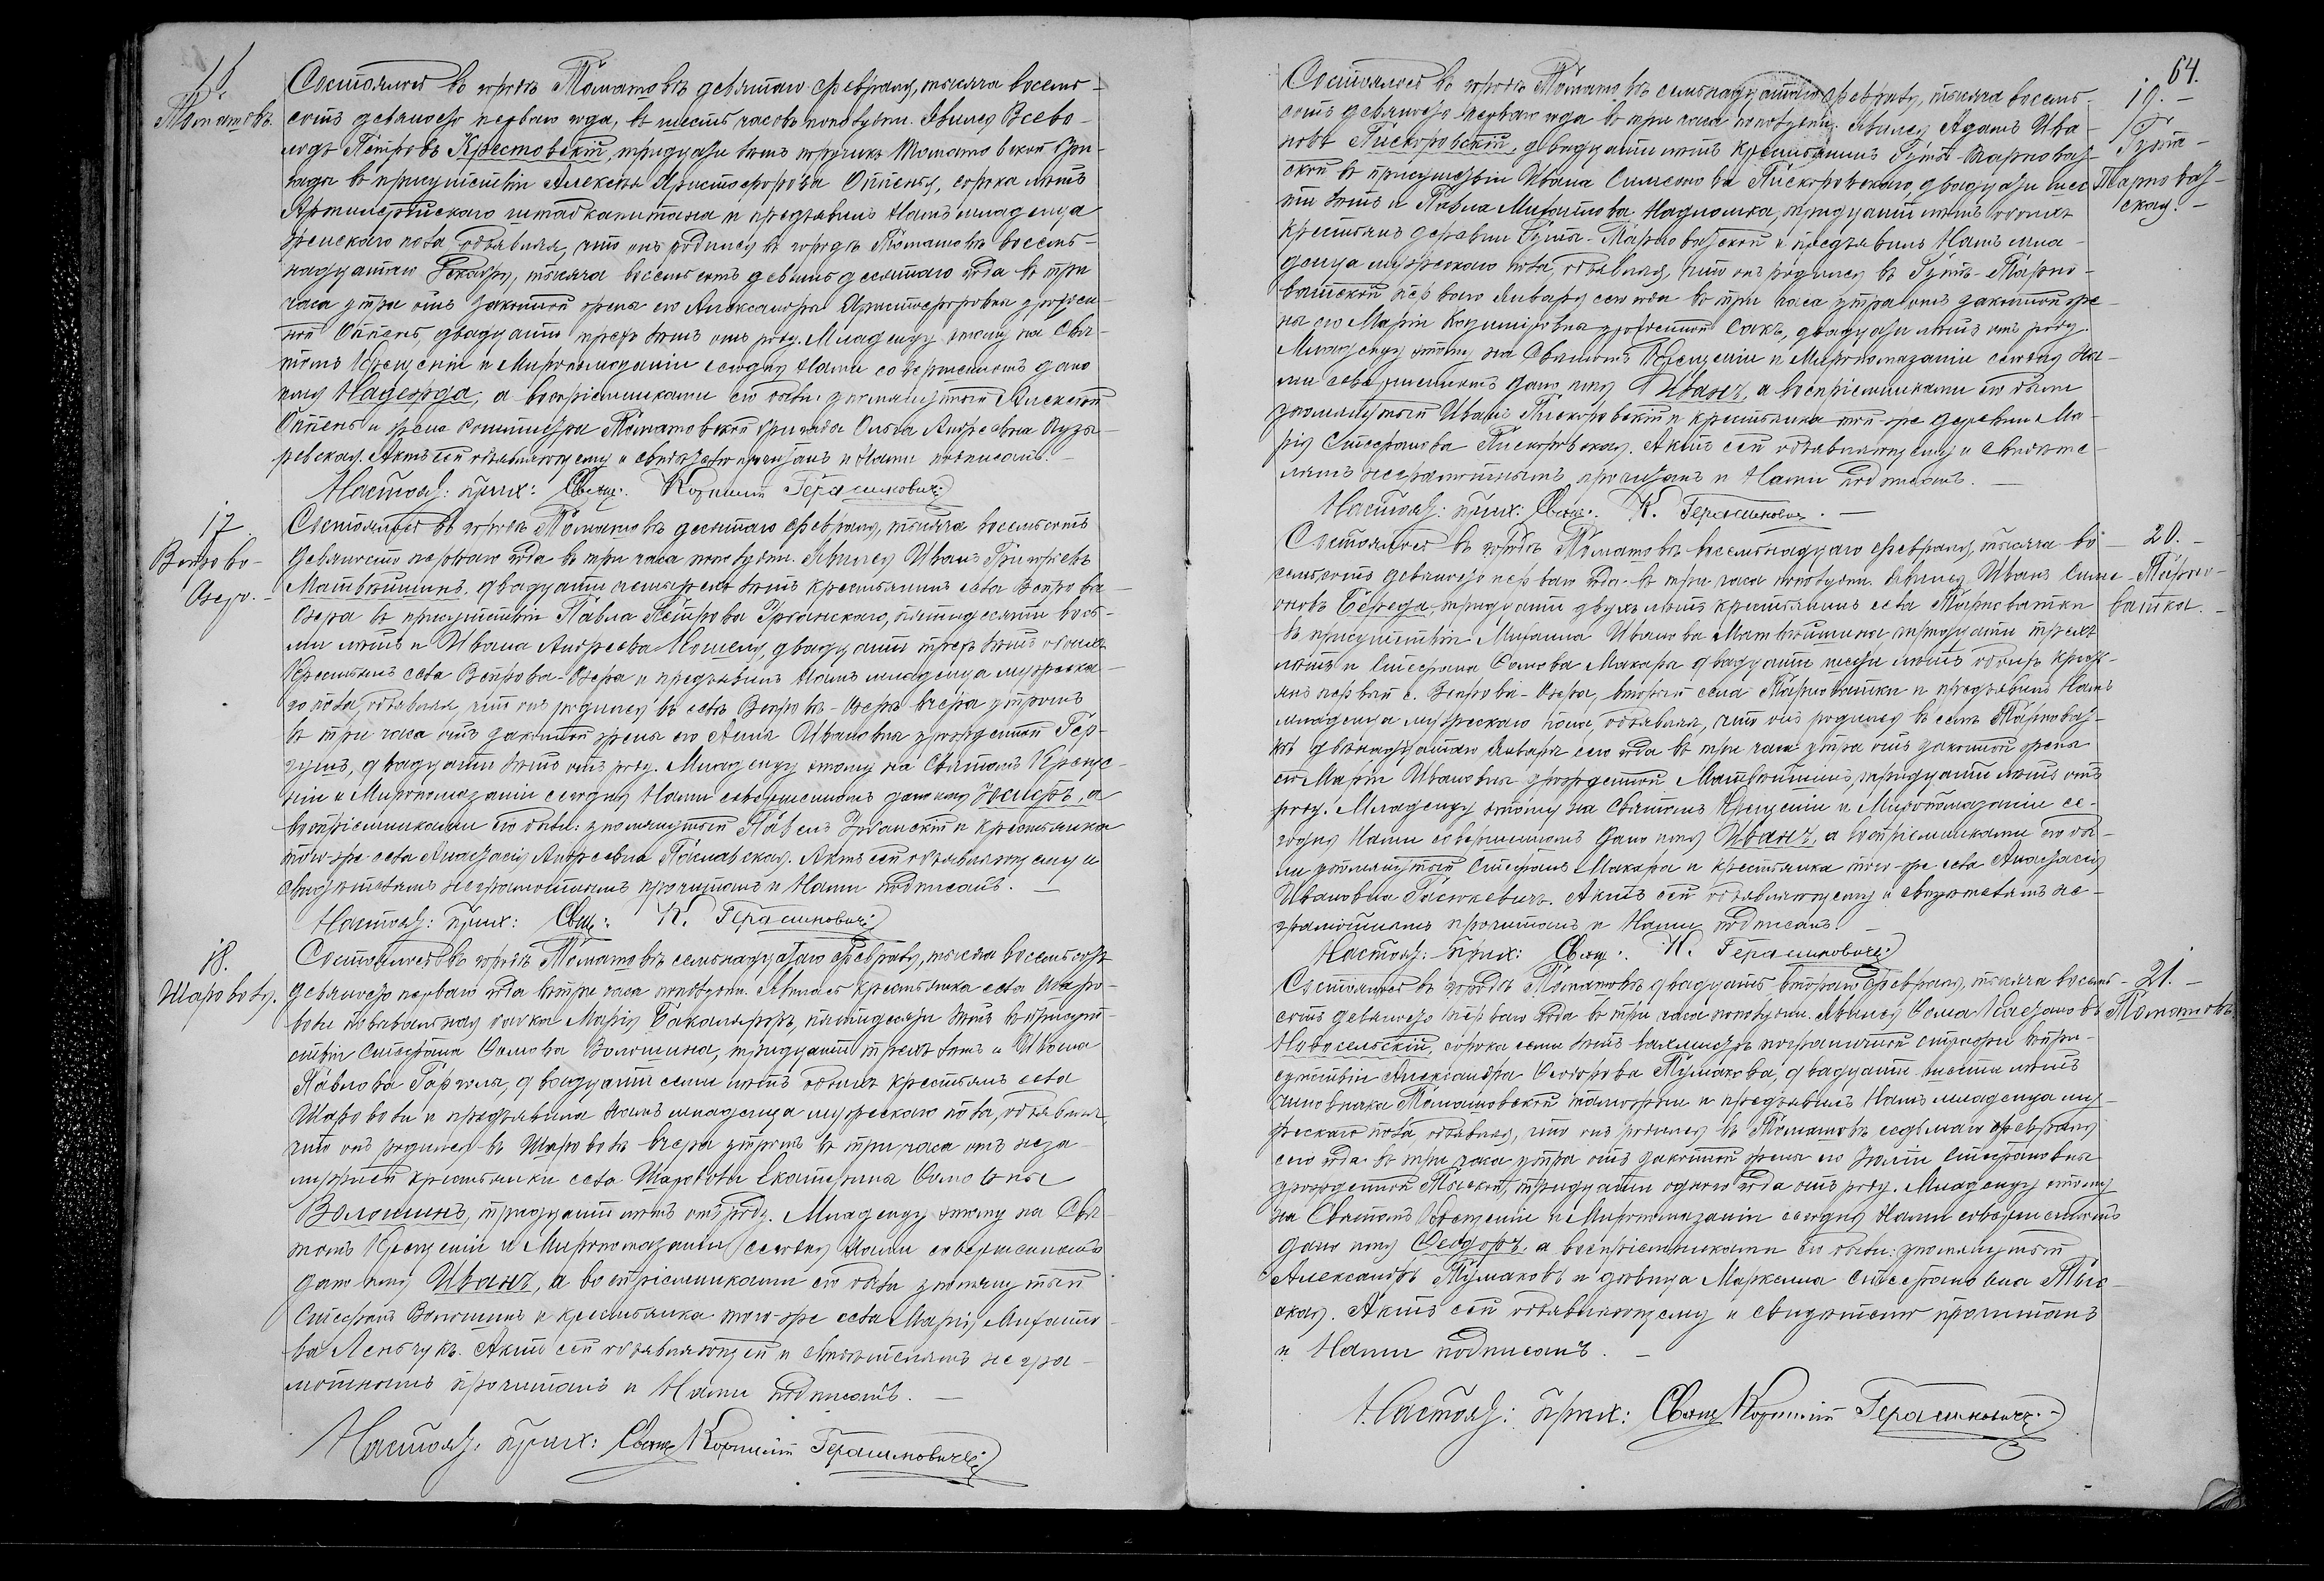 16.
Томашовъ.
Состоялось въ городѣ Томашовѣ девятаго Февраля, тысяча восемь-
сотъ девяносто перваго года, въ шесть часовъ пополудни. Явился Всево-
лодъ Петровъ Крестовскій, тридцати лѣтъ поручикъ Томашовской бри-
гады въ присутствіи Алексѣя Христофорова Оппель, сорока лѣтъ
Артиллерійскаго штабскапитана и предъявилъ Намъ младенца
женскаго пола, объявляя, что онъ родился въ городѣ Томашовѣ восем-
надцатаго Декабря, тысяча восемьсотъ девяностаго года въ три
часа утра отъ законной жены его Александры Христофоровны урожден-
ной Оппель, двадцати трехъ лѣтъ отъ роду. Младенцу этому на Свя-
томъ Крещеніи и Миропомазаніи сегодня Нами совершенномъ дано
имя Надежда, а воспріемниками его были: упомянутый Алексѣй
Оппель и жена Томашовской бригады Ольга Андреевна
Актъ сей объявляющему и свидѣтелю прочитанъ и Нами подписанъ.
Настоят: прих: Свящ: Корнилій Герасимовичъ
17.
Вепрово-
Озеро.
Состоялось въ городѣ Томашовѣ десятаго Февраля, тысяча восемьсотъ
девяносто перваго года въ три часа пополудни. Явился Иванъ Григорьевъ
Матвѣишинъ, двадцати четырехъ лѣтъ крестьянинъ села Вепрова
Озера въ присутствіи Павла Петрова Урбанскаго, пятидесяти вось-
ми лѣтъ и Ивана Андреева двадцати трехъ лѣтъ обоихъ
крестьянъ села Вепрова-Озера и предъявилъ Намъ младенца мужска-
го пола, объявляя, что онъ родился въ селѣ Вепровѣ-Озерѣ вчера утромъ
въ три часа отъ законной жены его Анны Ивановны урожденной Гер-
двадцати лѣтъ отъ роду. Младенцу этому на Святомъ Креще-
ніи и Миропомазаніи сегодня Нами совершенномъ дано имя Іосифъ, а
воспріемниками его были: упомянутый Павелъ Урбанскій и крестьянка
того-же села Анастасія Андреевна Паславская. Актъ сей объявляющему и
свидѣтелямъ неграмотнымъ прочитанъ и Нами подписанъ.
Настоят: прих: Свящ: К. Герасимовичъ
18.
Шароволя.
Состоялось въ городѣ Томашовѣ семнадцатаго Февраля, тысяча восемьсотъ
девяносто перваго года въ три часа пополудни. Явилась крестьянка села Шаро-
воли повивальная бабка Марія Бакаляръ, пятидесяти лѣтъ въ присут-
ствіи Стефана Ѳомова Волошина, тридцати трехъ лѣтъ и Ивана
Павлова двадцати семи лѣтъ обоихъ крестьянъ села
Шароволи и предъявила Намъ младенца мужескаго пола, объявляя,
что онъ родился въ Шароволѣ вчера утромъ въ три часа отъ неза-
мужней крестьянки села Шароволи Екатерины Ѳомовны
Волошинъ, тридцати лѣтъ отъ роду. Младенцу этому на Свя-
томъ Крещеніи и Миропомазаніи сегодня Нами совершенномъ
дано имя Иванъ, а воспріемниками его были упомянутый
Стефанъ Волошинъ и крестьянка того-же села Марія Михайло-
ва Леньчукъ. Актъ сей объявляющей и свидѣтелямъ негра-
мотнымъ прочитанъ и Нами подписанъ.
Настоят: прих: Свящ Корнилій Герасимовичъ
64.
19.
Гута-
Тарноват-
ская.
Состоялось въ городѣ Томашовѣ семнадцатаго Февраля, тысяча восемь-
сотъ девяносто перваго года въ три часа пополудни. Явился Адамъ Ива-
новъ Пискоровскій, двадцати лѣтъ крестьянинъ Гуты-Тарноват-
ской въ присутствіи Ивана Симеонова Пискоровскаго, двадцати шес-
ти лѣтъ и Павла Михайлова тридцати лѣтъ обоихъ
крестьянъ деревни Гуты-Тарноватской и предъявилъ Намъ мла-
денца мужескаго пола, объявляя, что онъ родился въ Гутѣ-Тарно-
ватской перваго Января сего года въ три часа утра отъ законной же-
ны его Маріи Казиміровны урожденной Сакъ, двадцати лѣтъ отъ роду.
Младенцу этому на Святомъ Крещеніи и Миропомазаніи сегодня На-
ми совершенномъ дано имя Иванъ, а воспріемниками его были
упомянутый Иванъ Пискоровскій и крестьянка той-же деревни Ма-
рія Стефанова Пискоровская. Актъ сей объявляющему и свидѣте-
лямъ неграмотнымъ прочитанъ и Нами подписанъ.
Настоят: прих: Свящ: К. Герасимовичъ.
20.
Тарно-
ватка.
Состоялось въ городѣ Томашовѣ восемнадцаго Февраля, тысяча во-
семьсотъ девяносто перваго года въ три часа пополудни. Явился Иванъ Симе-
оновъ Береда, тридцати двухъ лѣтъ крестьянинъ села Тарноватки
въ присутствіи Михаила Иванова Матвѣишина, тридцати трехъ
лѣтъ и Стефана Ѳомова Макара двадцати шести лѣтъ обоихъ крест-
янъ первый с. Вепрова-Озера, вторый села Тарноватки и предъявилъ Намъ
младенца мужескаго пола, объявляя, что онъ родился въ селѣ Тарноват-
кѣ двѣнадцатаго Января сего года въ три часа утра отъ законной жены
его Маріи Ивановны урожденной Матвѣишинъ, тридцати лѣтъ отъ
роду. Младенцу этому на Святомъ Крещеніи и Миропомазаніи се-
годня Нами совершенномъ дано имя Иванъ, а воспріемниками его бы-
ли упомянутый Стефанъ Макара и крестьянка того-же села Анастасія
Ивановна Гасюкевичъ. Актъ сей объявляющему и свидѣтелямъ не-
грамотнымъ прочитанъ и Нами подписанъ.
Настоят: прих: Свящ: К. Герасимовичъ
21.
Томашовъ.
Состоялось въ городѣ Томашовѣ двадцать втораго Февраля, тысяча восемь-
сотъ девяносто перваго года въ три часа пополудни. Явился Ѳома
Новосельскій, сорока семи лѣтъ вахмистръ пограничной стражи въ при-
сутствіи Александра Ѳеодорова Тумакова, двадцати шести лѣтъ
чиновника Томашовской таможни и предъявилъ Намъ младенца му-
жескаго пола, объявляя, что онъ родился въ Томашовѣ седьмаго Февраля
сего года въ три часа утра отъ законной жены его Юліи Стефановны
урожденной тридцати одного года отъ роду. Младенцу этому
на Святомъ Крещеніи и Миропомазаніи сегодня Нами совершенномъ
дано имя Ѳеодоръ, а воспріемниками его были: упомянутый
Александръ Тумаковъ и дѣвица Маркелла Стефановна
Актъ сей объявляющему и свидѣтелю прочитанъ
и Нами подписанъ.
Настоят: прих: Свящ Корнилій Герасимовичъ.